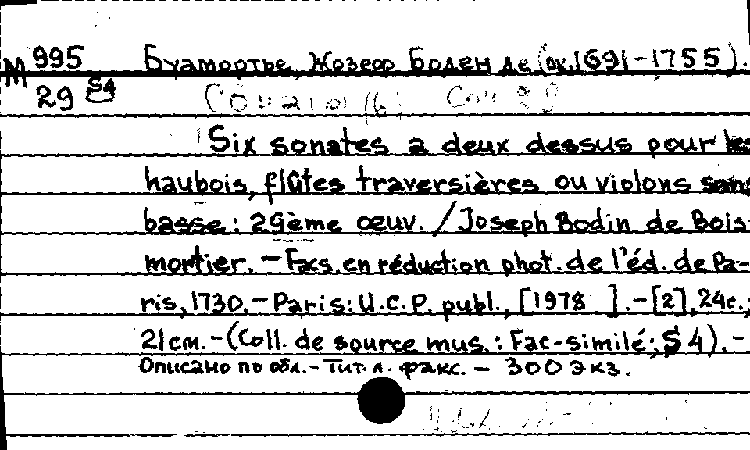 М 995 Буамортье, Жозеф Боден де (ок.1691-1755).
29 S4
Six sonates a deux dessus pour les
haubois, flûtes traversières ou violons sans
basse: 29ème œuv. / Joseph Bodin de Bois-
mortier. - Facs. en réduction phot. de l'éd. de Pa-
ris, 1730. - Paris: U.C.P. publ., [1978 ]. - [2], 24c.;
21cm. - (Coll. de source mus.: Fac-similé; S4). -
Описано по обл. - Тит. л. факс. - 300 экз.